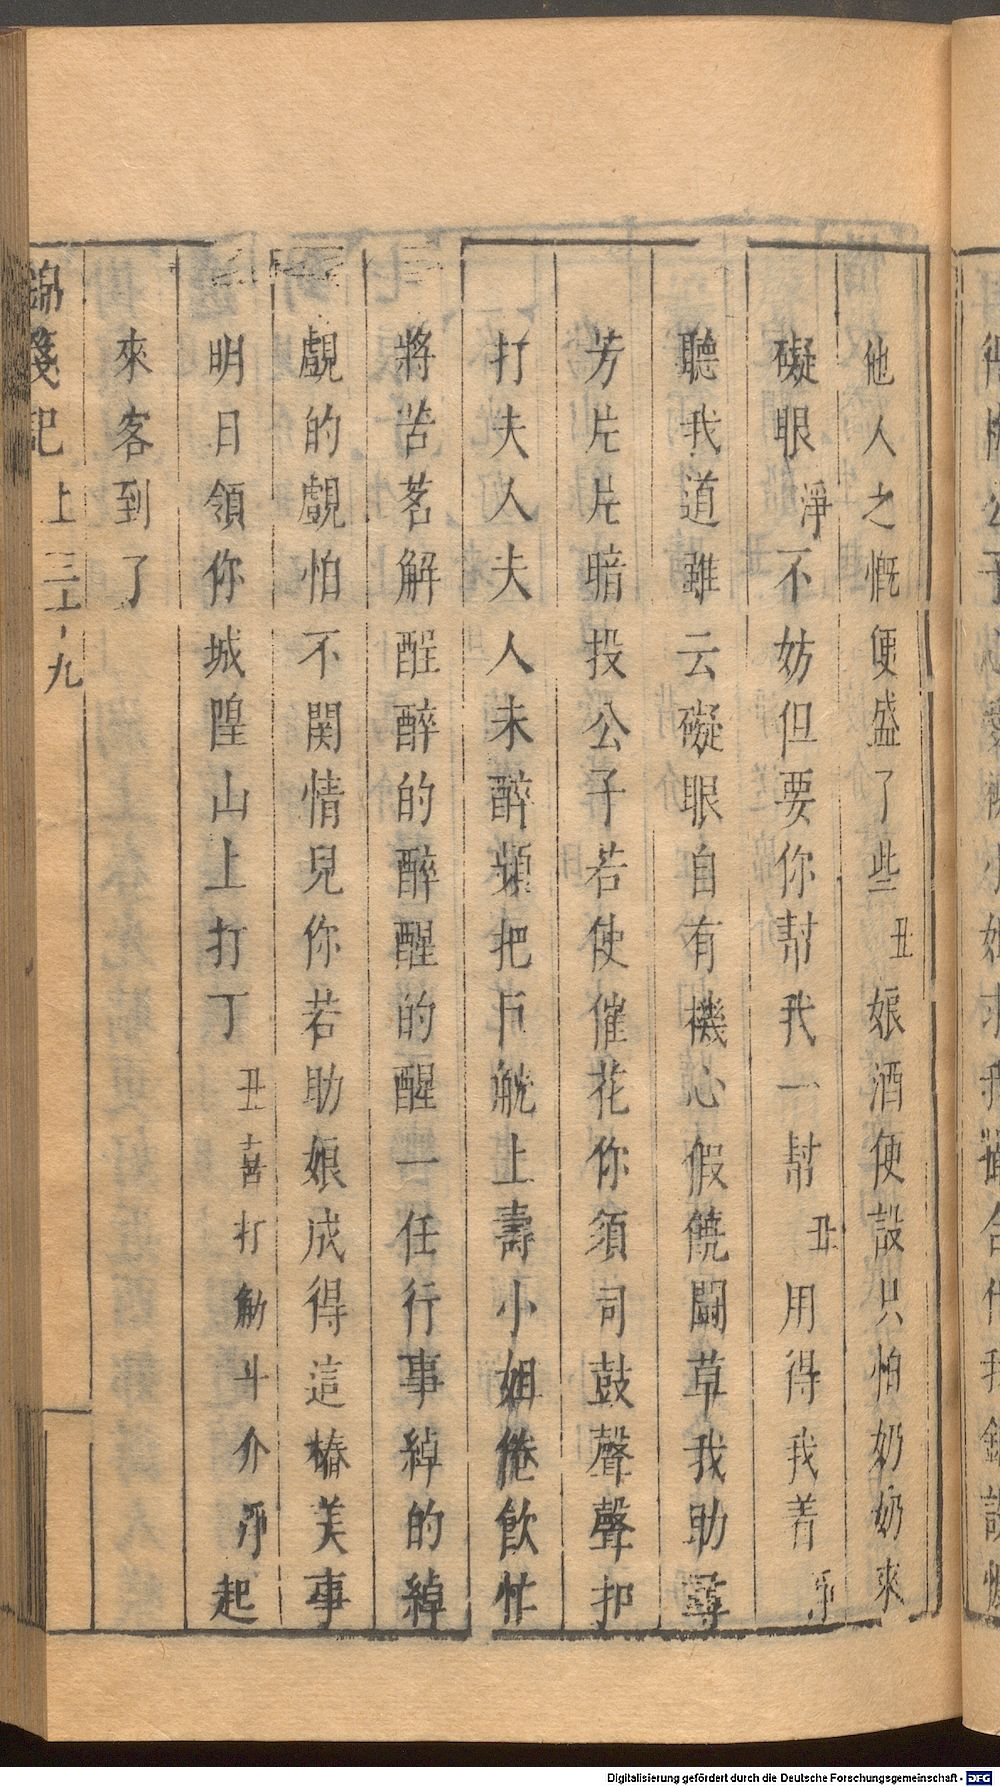 他人之慨便盛了些丑娘酒便設只怕奶奶來
礙眼淨不妨但要你幇我一幇丑用得我着淨
聽我道雖云礙眼自有機心假饒鬪草我助尋
芳片片暗投公子若使催花你須司鼓聲聲扣
打夫人夫人未醉頻把巨觥上壽小姐倦飲忙
將苦茗解酲醉的醉醒的醒一任行事綽的綽
覷的覷怕不関情兒你若助娘成得這樁美事
明日領你城隍山上打丁丑喜打觔斗介淨起
來客到了
錦箋記 上 九
Digitalisierung gefördert durch die Deutsche Forschungsgemeinschaft - DFG